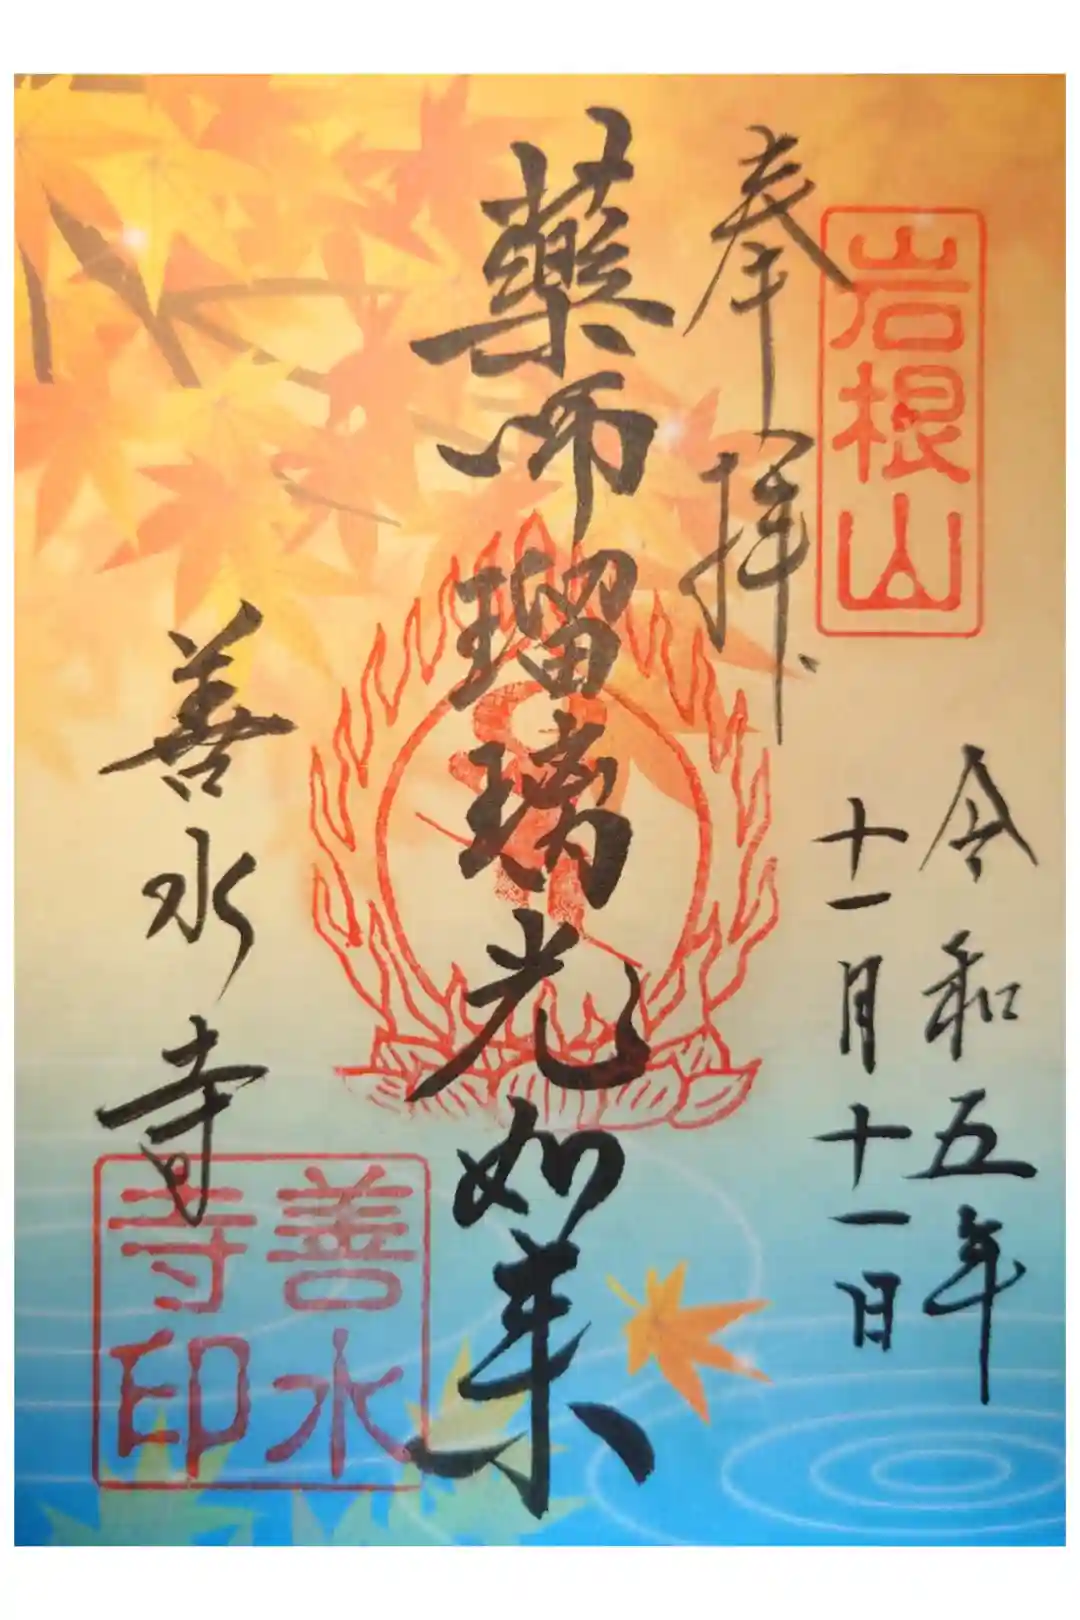 岩根山
奉拝
令和五年
十一月十一日
薬师瑠璃光如来
善水寺
善水
寺印